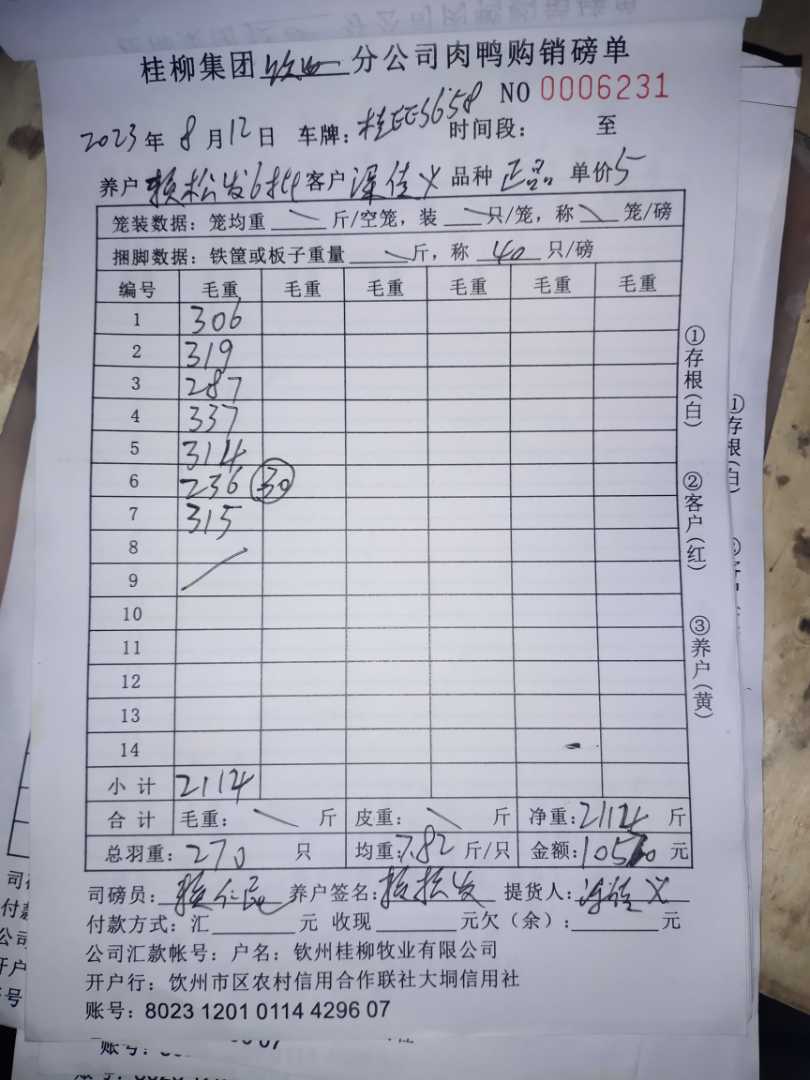 桂柳集团 钦州 分公司肉鸭购销磅单
NO 0006231
2023 年 8 月 12 日 车牌: 桂EE3658 时间段: 至
养户 赖松发6批 客户 深佳义 品种 正品 单价 5
笼装数据: 笼均重 斤/空笼, 装 只/笼, 称 笼/磅
捆脚数据: 铁筐或板子重量 斤, 称 40 只/磅
编号 毛重 毛重 毛重 毛重 毛重 毛重
1 306
2 319
3 287
4 337
5 314
6 236 30
7 315
8
9
10
11
12
13
14
小计 2114
合计 毛重: 斤 皮重: 斤 净重: 2114 斤
总羽重: 270 只 均重: 7.82 斤/只 金额: 10570 元
司磅员: 赖仁民 养户签名: 赖松发 提货人:
付款方式: 汇 元 收现 元欠(余): 元
公司汇款帐号: 户名: 钦州桂柳牧业有限公司
开户行: 饮州市区农村信用合作联社大垌信用社
账号: 8023 1201 0114 4296 07
①存根(白)
②客户(红)
③养户(黄)